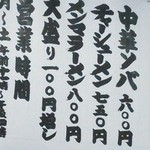 中華ソバ 六〇〇円
チャーシューメン 七五〇円
メンマラーメン 八〇〇円
大盛り 一〇〇円増し
営業時間
月〜土 午前十時〜